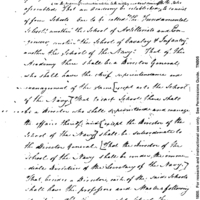 provided. That an Academy be established, to consist
of four Schools, one to be called "the Fundamental
School" another the School of Artillerists and En-
gineers, another "the School of Cavalry & Infantry"
another the School of the Navy; That of the
Academy there shall be a Director General
who shall have the chief superintendence and
management of the same [except as to the School
of the Navy] That to each School there shall
be a Director who shall superintend and manage
the affairs thereof, and [except the Director of the
School of the Navy] shall be subordinate to
the Director General. [That the Director of the
School of the Navy shall be under the immediate
direction of the Secretary of the Navy.]
That besides a Director, each of the said Schools
shall have the professors and Masters following